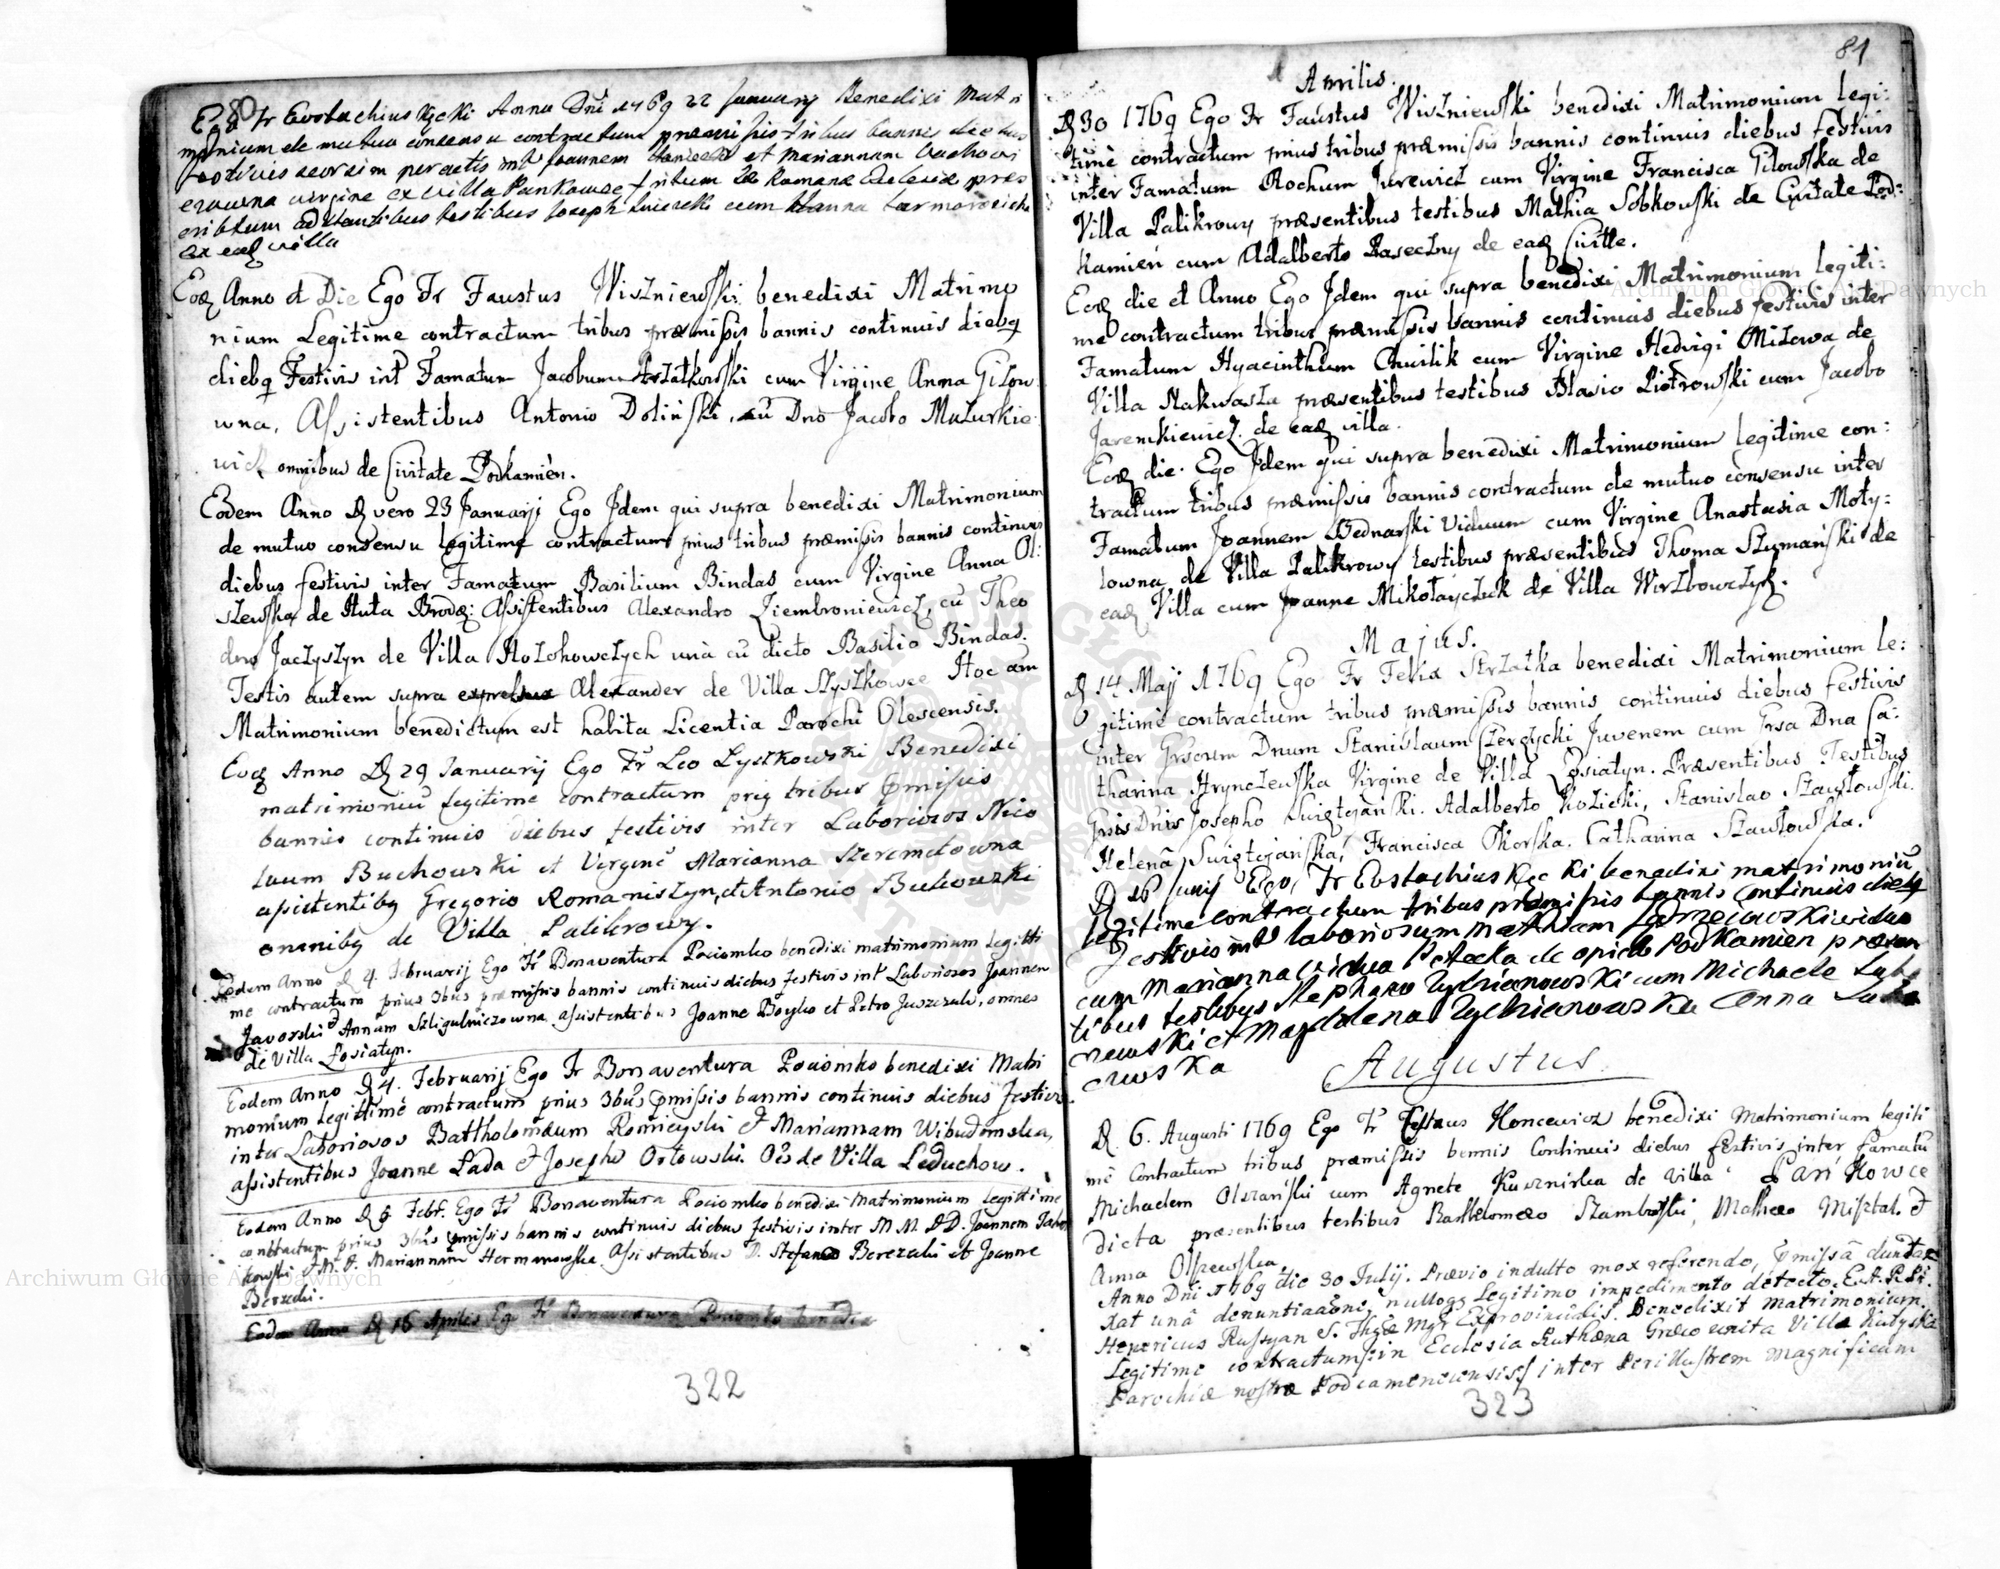 80
Ego Fr Eustachius Kęcki Anno Dni 1769 22 January Benedixi Matri
monium de mutuo consensu contractum præmissis tribus bannis diebus
festivis seorsim peractis int Joannem et Mariannam Buchowi
czowna virgine ex villa Pankowce ritum Romanæ Ecclesiæ pres
criptum adstantibus testibus Joseph cum Anna
ex eaḍ villa
Eoḍ Anno et Die Ego Fr Faustus Wiszniewski benedixi Matrimo
nium Legitime contractum tribus præmissis bannis continuis diebq
diebq Festivis int Famatum Jacobum Strzałkowski cum Virgine Anna Gizow
wna, Assistentibus Antonio Doliński, cū Dno Jacobo Mazurkie
wicz omnibus de Civitate Podkamień.
Eodem Anno D vero 23 Januarij Ego Idem qui supra benedixi Matrimonium
de mutuo consensu legitime contractum prius tribus præmissis bannis continuis
diebus festivis inter Famatum Basilium Bindas cum Virgine Anna Ol:
szewska de Huta Brodz: Assistentibus Alexandro Ziembroniewicz, cū Theo
doro Jaczyszyn de Villa Hołohowczych unà cū dicto Basilio Bindas.
Testis autem supra expressus Alexander de Villa Szyszkowce Hoc aūm
Matrimonium benedictum est habita Licentia Parochi Olescensis.
Eoḍ Anno D 29 Ianuarij Ego Fr Leo Lyszkowski Benedixi
matrimoniū legitime contractum priq tribus pmissis
bannis continuis diebus festivis inter Laboriosos Nico
laum Buchowski et Virginē Marianna Szeremetowna
assistentibq Gregorio Romaniszyn, et Antonio Bukowski
omnibq de Villa Palikrowy.
Eodem Anno D 4 Februarij Ego Fr Bonaventura Pociomko benedixi matrimonium Legitti
me contractum prius 3bus præmissis bannis continuis diebus festivis int Laboriosos Joannem
Javorski et Annam Szligulniczowna assistentibus Joanne Boyko et Petro Juszczuk, omnes
de Villa Łosiatyn.
Eodem Anno D 4. Februarij Ego Fr Bonaventura Pociomko benedixi Matri
monium Legittimè contractum prius 3bus pmissis bannis continuis diebus festivis
inter Laboriosos Bartholomæum Romicyski et Mariannam Wibudomska,
assistentibus Joanne Łada et Josepho Orłowski Oēs de Villa Leduchow.
Eodem Anno D 5 Febr. Ego Fr Bonaventura Pociomko benedixi Matrimonium Legittime
contractum prius 3bus pmissis bannis continuis diebus festivis inter M. M. D D. Joannem
kowski et M. D. Mariannam Hermanowska. Assistentibus D. Stefano Berezecki et Joanne
Berzecki.
Eodem Anno D 16 Aprilis Ego Fr Bonaventura Pociomko benedixi
322
81
Aprilis.
D 30 1769 Ego Fr Faustus Wiszniewski benedixi Matrimonium legi:
time contractum prius tribus præmissis bannis continuis diebus festivis
inter Famatum Rochum Jurewicz cum Virgine Francisca Gilowska de
Villa Palikrowy præsentibus testibus Mathia Sobkowski de Civitate Pod:
kamień cum Adalberto Raseczny de eaḍ Civitte.
Eoḍ die et Anno Ego Idem qui supra benedixi Matrimonium legiti:
me contractum tribus præmissis bannis continuis diebus festivis inter
Famatum Hyacinthum Chwilik cum Virgine Hedvigi Miłowa de
Villa Nakwasza præsentibus testibus Blasio Piotrowski cum Jacobo
Jaremkiewicz de eaḍ villa.
Eoḍ die. Ego Idem qui supra benedixi Matrimonium legitime con:
tractum tribus præmissis bannis contractum de mutuo consensu inter
Famatum Joannem Bednarski Viduum cum Virgine Anastasia Moty:
lowna de Villa Palikrowy testibus præsentibus Thoma Szymański de
eaḍ Villa cum Joanne Mikołayczuk de Villa Wirzbowczyk.
Majus.
D 14 Maij 1769 Ego Fr Felix Strzałka benedixi Matrimonium le:
gitime contractum tribus præmissis bannis continuis diebus festivis
inter Grsum Dnum Stanislaum Czerżycki Juvenem cum Grsa Dna Ca:
tharina Hrynczewska Virgine de Villa Łosiatyn. Præsentibus Testibus
Grsis Dnis Josepho Swiętojański. Adalberto Kozicki, Stanislao Szawłowski.
Helenâ Swiętojańska, Francisca Okorska. Catharina Szawłowska.
D 26 Junij Ego, Fr Eustachius Kęcki benedixi matrimoniū
legitime contractum tribus præmissis bannis continuis diebq
festivis int laboriosum Mathiam Jarzewski viduo
cum Marianna vidua Petecka de opido Podkamien præsen
tibus testibus Stephano Zychianowski cum Michaele
newski et Magdalena Zychianowska Anna
Augustus.
D. 6. Augusti 1769 Ego Fr Koncewicz benedixi Matrimonium legiti
mè Contractum tribus præmissis bannis Continuis diebus festivis inter famatū
Michaelem Olszański cum Agnete Kusznirka de Villa Pańkowce
dicta præsentibus testibus Bartholomæo Szambolski, Matheo Misztal. et
Anna Olszewska.
Anno Dni 1769 die 30 Julij. Prævio indulto mox referendo, pmissâ duntax
xat unâ denuntiatione, nulloq Legitimo impedimento detecto.
Henricus Russyan S. Thgiæ Mgr Exprovincialis. Benedixit Matrimonium
Legitime contractum, in Ecclesia Ruthæna Græco unita Villæ
Parochiæ nostræ Podcamenecensis, inter Perillustrem Magnificum
323
Archiwum Główne Akt Dawnych
Archiwum Główne Akt Dawnych